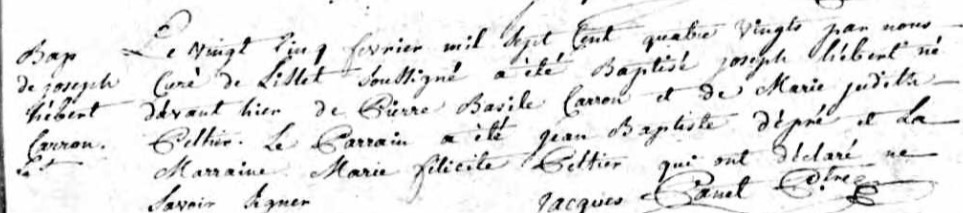 Bap
de joseph
hébert
Carron.
Le vingt Cinq fevrier mil sept Cent quatre vingts par nous
Curé de Lislet soussigné a été Baptisé joseph hébert né
davant hier de Pierre Basile Carron et de Marie judith
Peltier. Le Parrain a été jean Baptiste dépré et La
Marraine Marie félicité Peltier qui ont déclaré ne
savoir signer
Jacques Panet Ptre